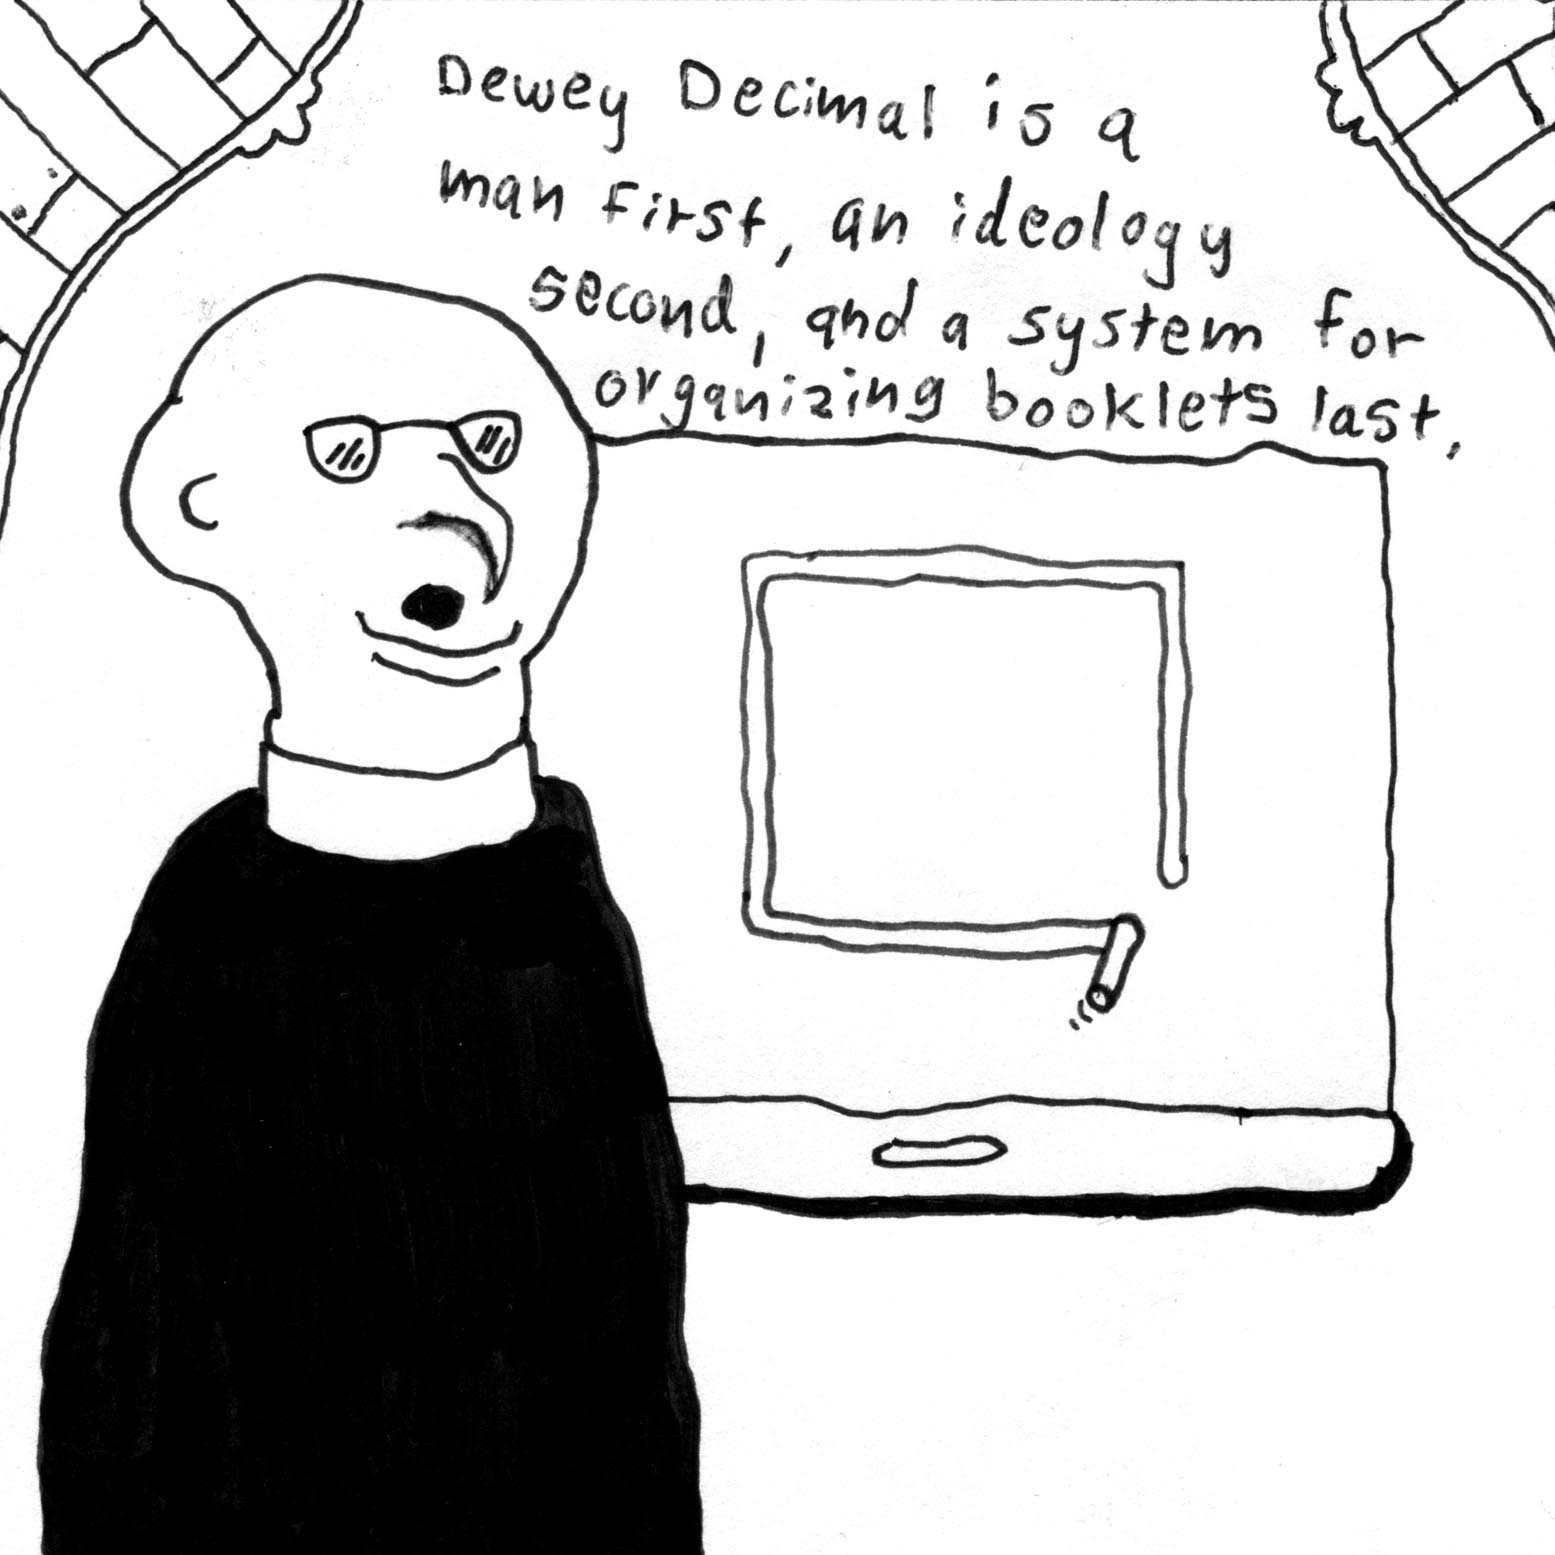 Dewey Decimal is a
man first, an ideology
second, and a system for
organizing booklets last.